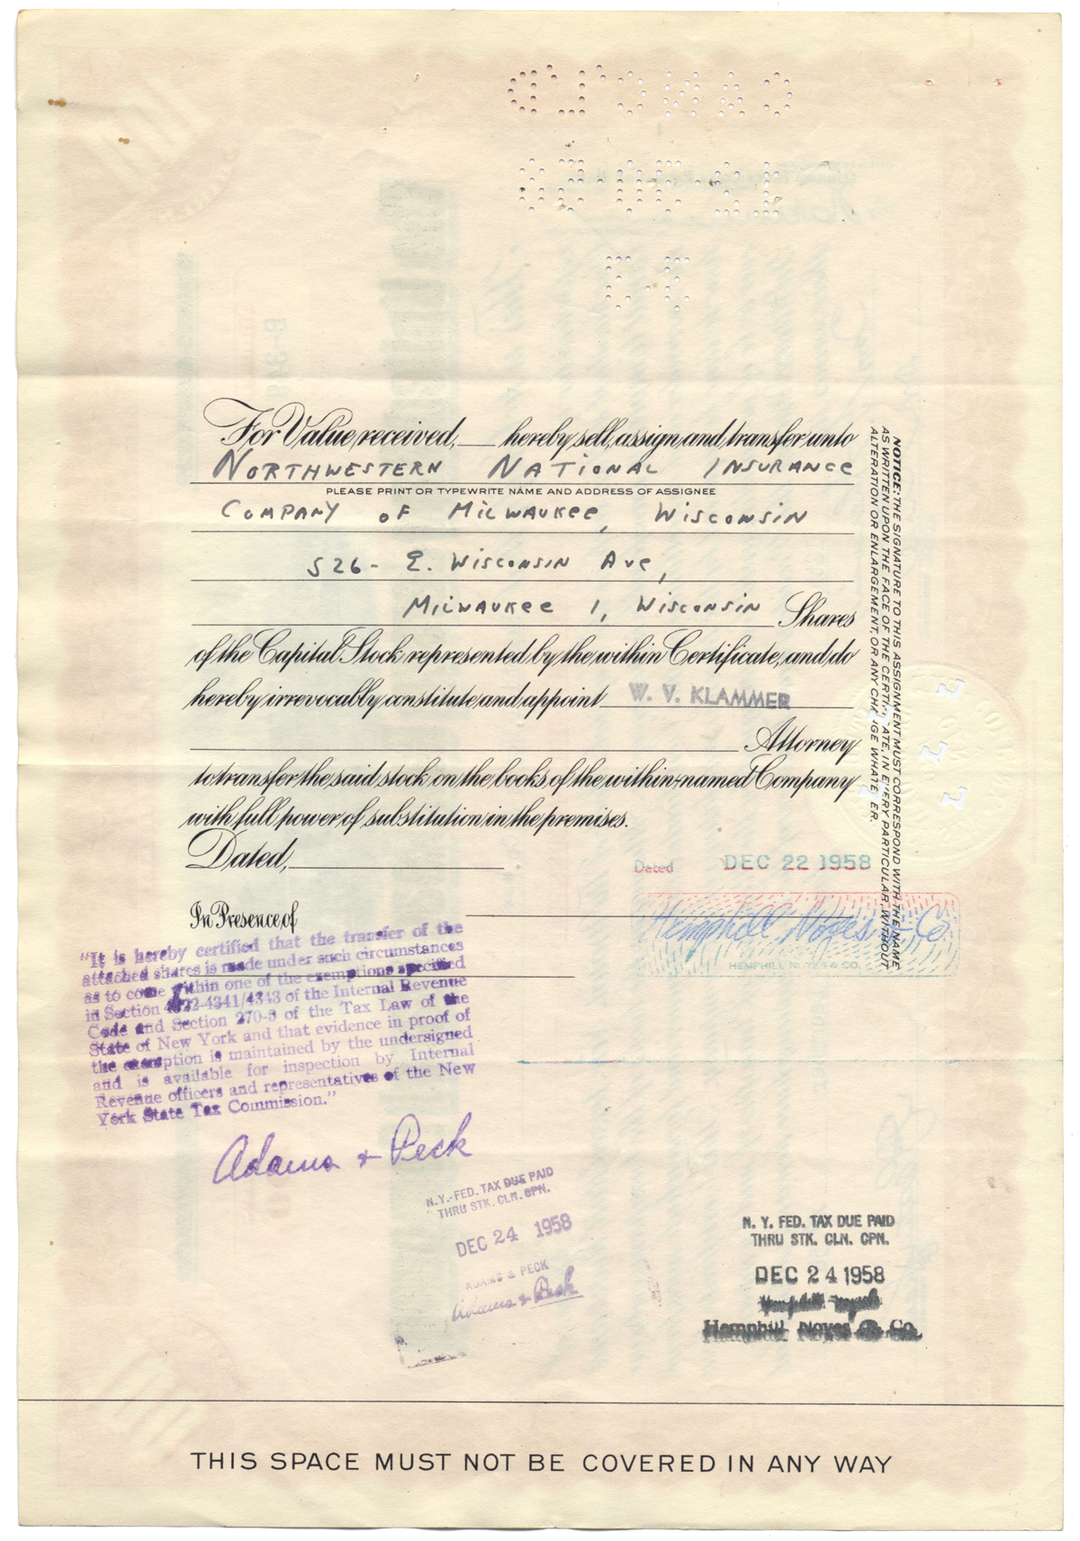 CANC'LD
12-30-58
J-S
For Value received, hereby sell, assign and transfer unto
NORTHWESTERN NATIONAL INSURANCE
PLEASE PRINT OR TYPEWRITE NAME AND ADDRESS OF ASSIGNEE
COMPANY OF MILWAUKEE, WISCONSIN
526- E. WISCONSIN AVE,
MILWAUKEE 1, WISCONSIN Shares
of the Capital Stock represented by the within Certificate, and do
hereby irrevocably constitute and appoint W. V. KLAMMER
Attorney
to transfer the said stock on the books of the within-named Company
with full power of substitution in the premises.
Dated,
Dated DEC 22 1958
In Presence of
Hemphill Noyes & Co
HEMPHILL NOYES & CO.
NOTICE: THE SIGNATURE TO THIS ASSIGNMENT MUST CORRESPOND WITH THE NAME
AS WRITTEN UPON THE FACE OF THE CERTIFICATE, IN EVERY PARTICULAR, WITHOUT
ALTERATION OR ENLARGEMENT, OR ANY CHANGE WHATEVER.
"It is hereby certified that the transfer of the
attached shares is made under such circumstances
as to come within one of the exemptions specified
in Section 4322-4341/4343 of the Internal Revenue
Code and Section 270-5 of the Tax Law of the
State of New York and that evidence in proof of
the exemption is maintained by the undersigned
and is available for inspection by Internal
Revenue officers and representatives of the New
York State Tax Commission."
Adams & Peck
N.Y.-FED. TAX DUE PAID
THRU STK. CLN. CPN.
DEC 24 1958
ADAMS & PECK
Adams & Peck
N. Y. FED. TAX DUE PAID
THRU STK. CLN. CPN.
DEC 24 1958
Hemphill Noyes & Co.
THIS SPACE MUST NOT BE COVERED IN ANY WAY